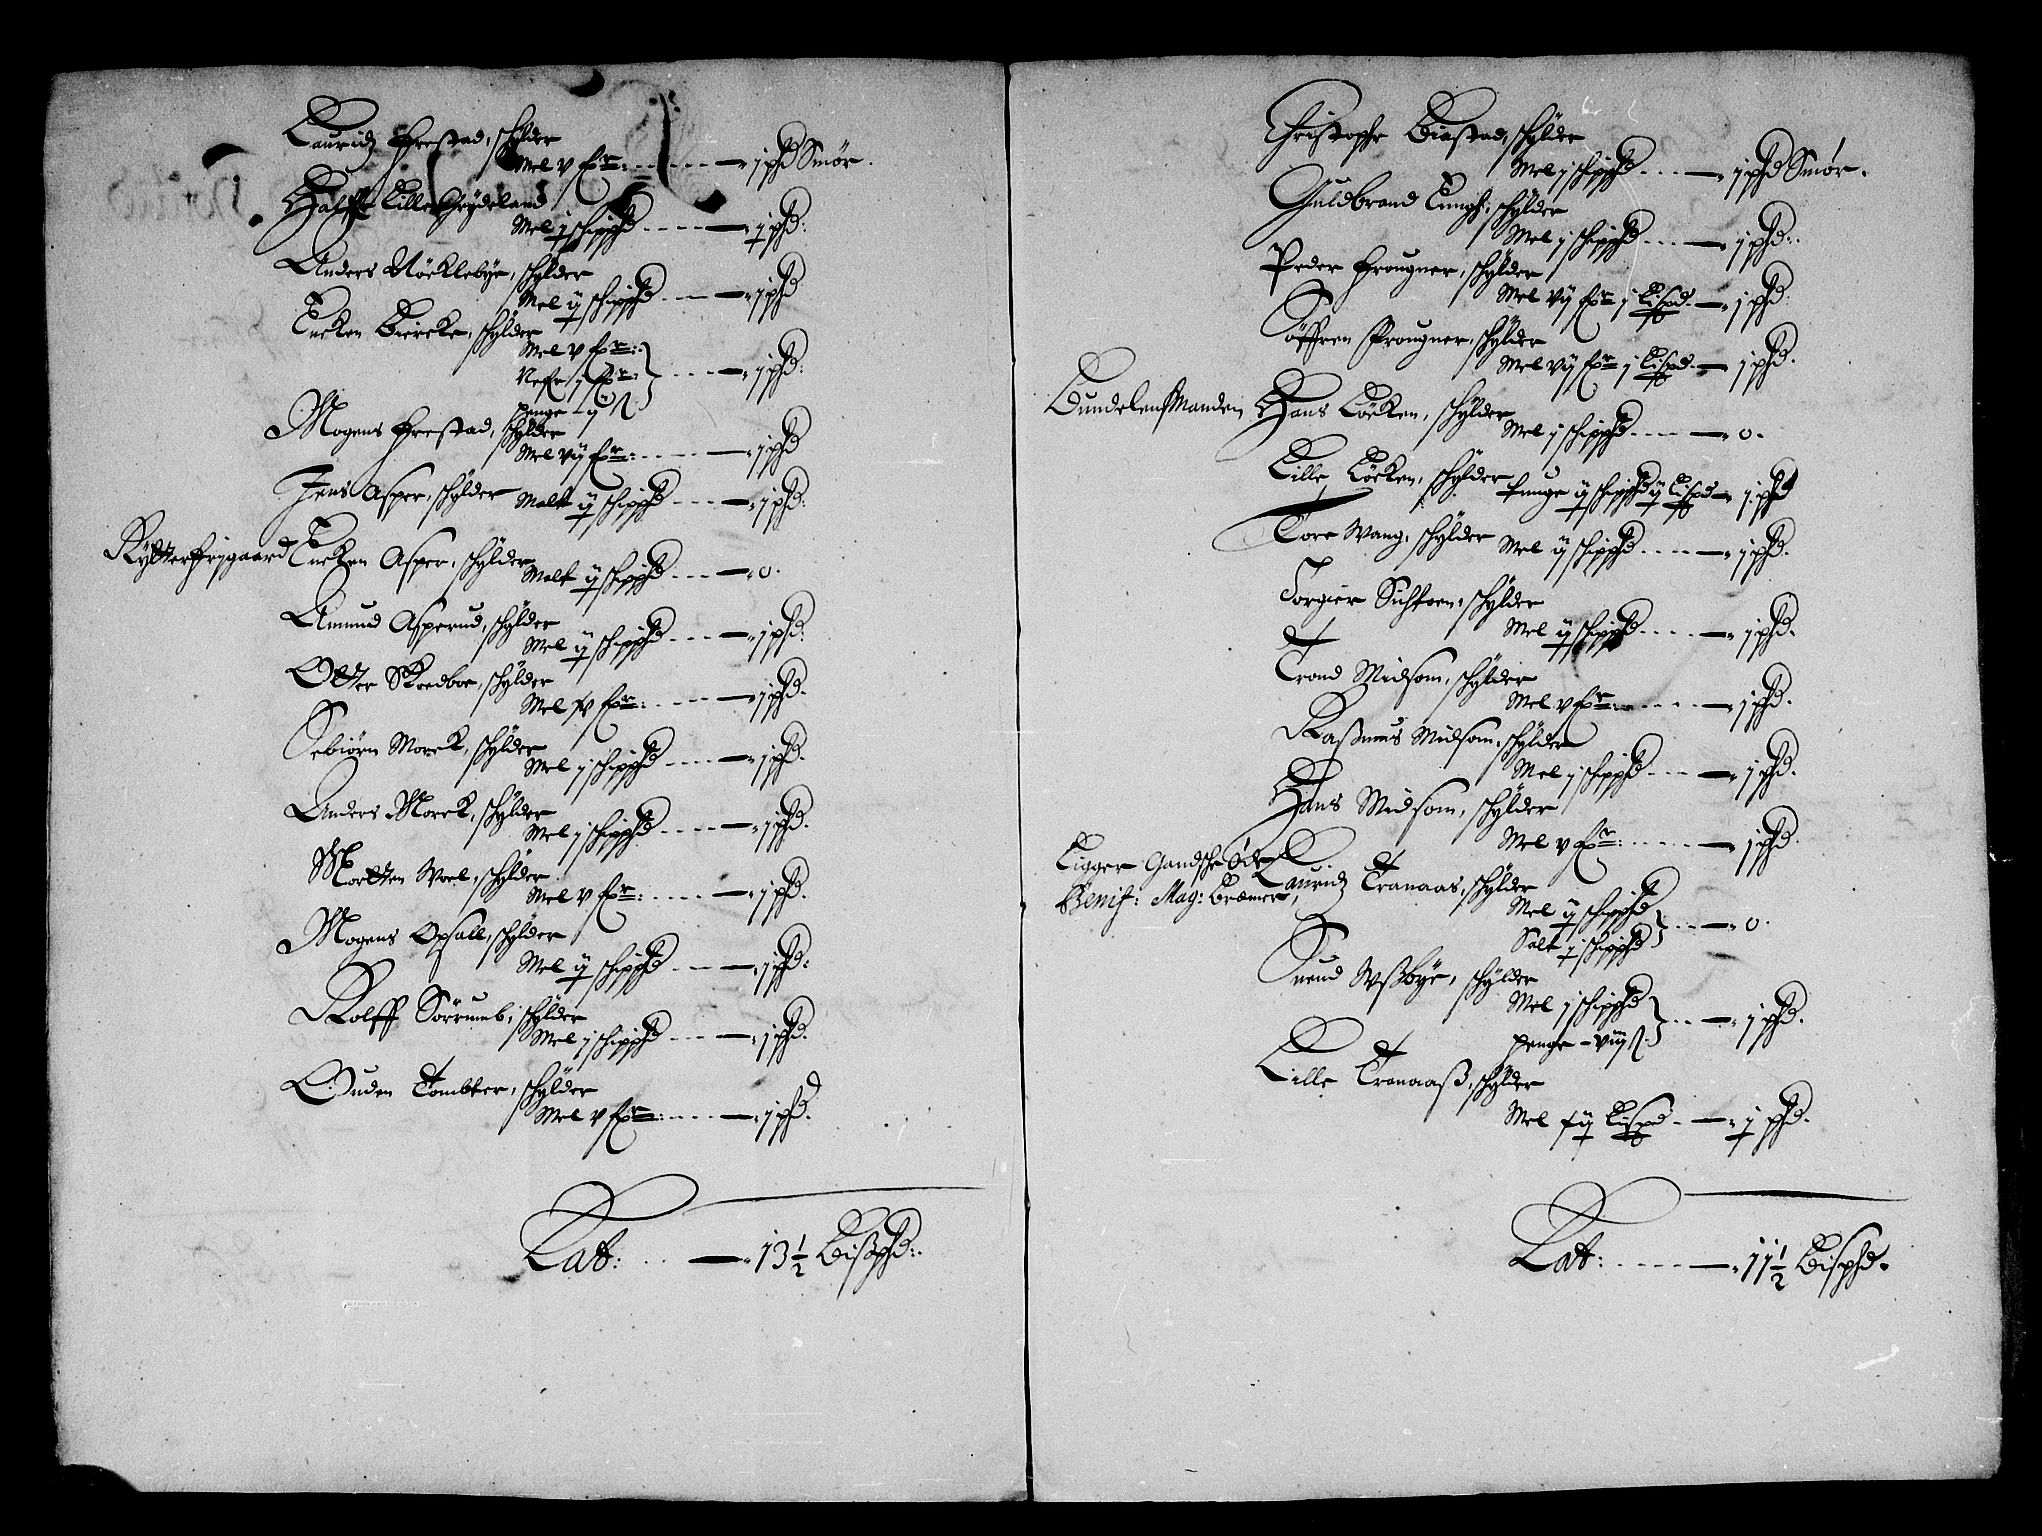 Lauridz Hrestad, schylder
Mel v Fr: - - - - - 1 phd Smør.
Halff Lille Grydeland
Mel j schippd - - - - j phd:
Anders Nöcklebye, schylder
Mel ij schippd - - - 1 phd
Encken Biercke, schylder
Mel v Fr:
j Fr: - - - 1 phd:
penge - ij
Mogens Hrestad, schylder
Mel vij Fr: - - - - 1 phd
Jens Asper, schylder Malt ij schippd - - - 1 phd:
Rytterfrygaard Encken Asper, schylder
Malt ij schippd - - - 0.
Amund Asperud, schylder
Mel ij schippd - - - 1 phd:
Otter Skedboe, schylder
Mel Fr: - - - - 1 phd.
Sebiörn Morck, schylder
Mel j schippd - - - 1 phd.
Anders Morck, schylder
Mel j schippd - - - - 1 phd.
Mortten Woel, schylder
Mel v Fr: - - - - 1 phd.
Mogens Opsall, schylder
Mel ij schippd - - - 1 phd:
Rolff Sörrumb, schylder
Mel j schippd - - - 1 phd.
Guden Tombter, schylder
Mel v Fr: - - - - 1 phd.
Lat: - - - 13 1/2 Bißphd:
Christopher Biestad, schylder
Mel j schippd - - - 1 phd Smør.
Guldbrand Lunge, schylder
Mel j schippd - - - 1 phd:
Peder Frougner, schylder
Mel vij Fr j Lispd. - 1 phd:
Söffren Frougner, schylder
Mel vij Fr j Lispd. - 1 phd.
Hans Löcken, schylder
Mel j schippd - - - - 0.
Lille Löcken, schylder
Tunge ij schippd ij Lispd - 1 phd
Tore Wang, schylder Mel ij schippd - - - - 1 phd.
Torgier schylder
Mel ij schippd - - - - 1 phd.
Trond Midsom, schylder
Mel v Fr: - - - - - 1 phd.
Raßmus Midsom, schylder
Mel j schippd - - - 1 phd.
Hans Midsom, schylder
Mel v Fr: - - - - - 1 phd.
Ligger Gandsche Öde
Lauridz Tranaas, schylder
Benif: Mag: Bremer,
Mel ij schippd
Salt j schippd - - - 0.
Suend Wßbye, schylder
Mel j schippd
penge - viij - - - 1 phd.
Lille Tranaaß, schylder
Mel Lispd - - j phd.
Lat: - - - - - 11 1/2 Bisphd.